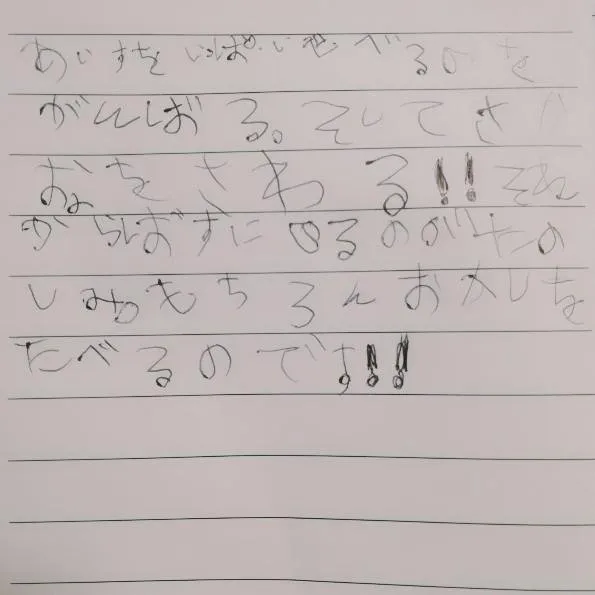 あいすを いっぱい たべるのを
がんばる。そしてさか
なをさわる!!それ
からばすにのるのがたの
しみ。もちろんおかしを
たべるのです!!